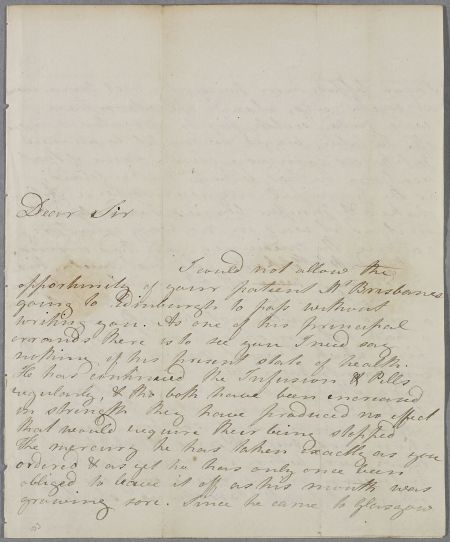 Dear Sir
I could not allow the
opportunity of your patient Mr Brisbanes
going to Edinburgh to pass without
writing you. As one of his principal
errands there is to see you I need say
nothing of his present state of health.
He has continued the Infusion & Pills
regularly, & tho both have been increased
in strength they have produced no effect
that would require their being stopped
The mercury he has taken exactly as you
ordered & as yet he has only once been
obliged to leave it off as his mouth was
growing sore. Since he came to Glasgow